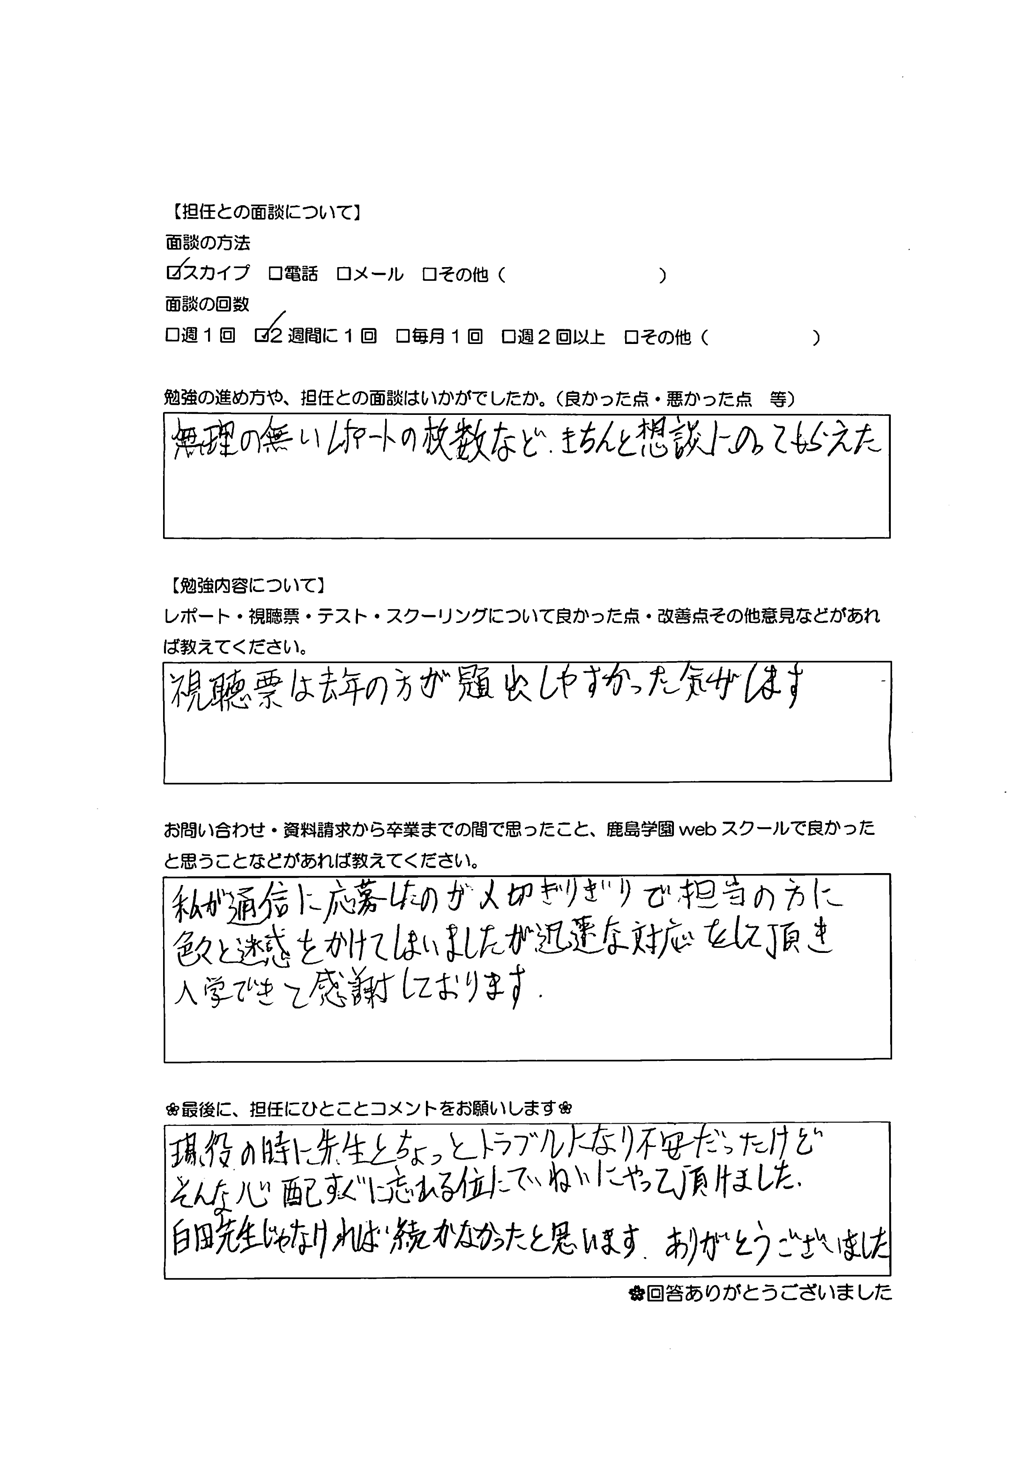 【担任との面談について】
面談の方法
☑スカイプ　□電話　□メール　□その他（　　　　　　　　　）
面談の回数
□週１回　☑２週間に１回　□毎月１回　□週２回以上　□その他（　　　　　　）
勉強の進め方や、担任との面談はいかがでしたか。（良かった点・悪かった点　等）
無理の無いレポートの枚数など、きちんと想談にのってもらえた
【勉強内容について】
レポート・視聴票・テスト・スクーリングについて良かった点・改善点その他意見などがあれ
ば教えてください。
視聴票は去年の方が題出しやすかった気がします
お問い合わせ・資料請求から卒業までの間で思ったこと、鹿島学園 web スクールで良かった
と思うことなどがあれば教えてください。
私が通信に応募したのが〆切ぎりぎりで担当の方に
色々と迷惑をかけてしまいましたが迅速な対応をして頂き
入学できて感謝しております.
❀最後に、担任にひとことコメントをお願いします❀
現役の時に先生とちょっとトラブルになり不安だったけど
そんな心配すぐに忘れる位にていねいにやって頂けました.
白田先生じゃなければ続かなかったと思います. ありがとうございました
❀回答ありがとうございました